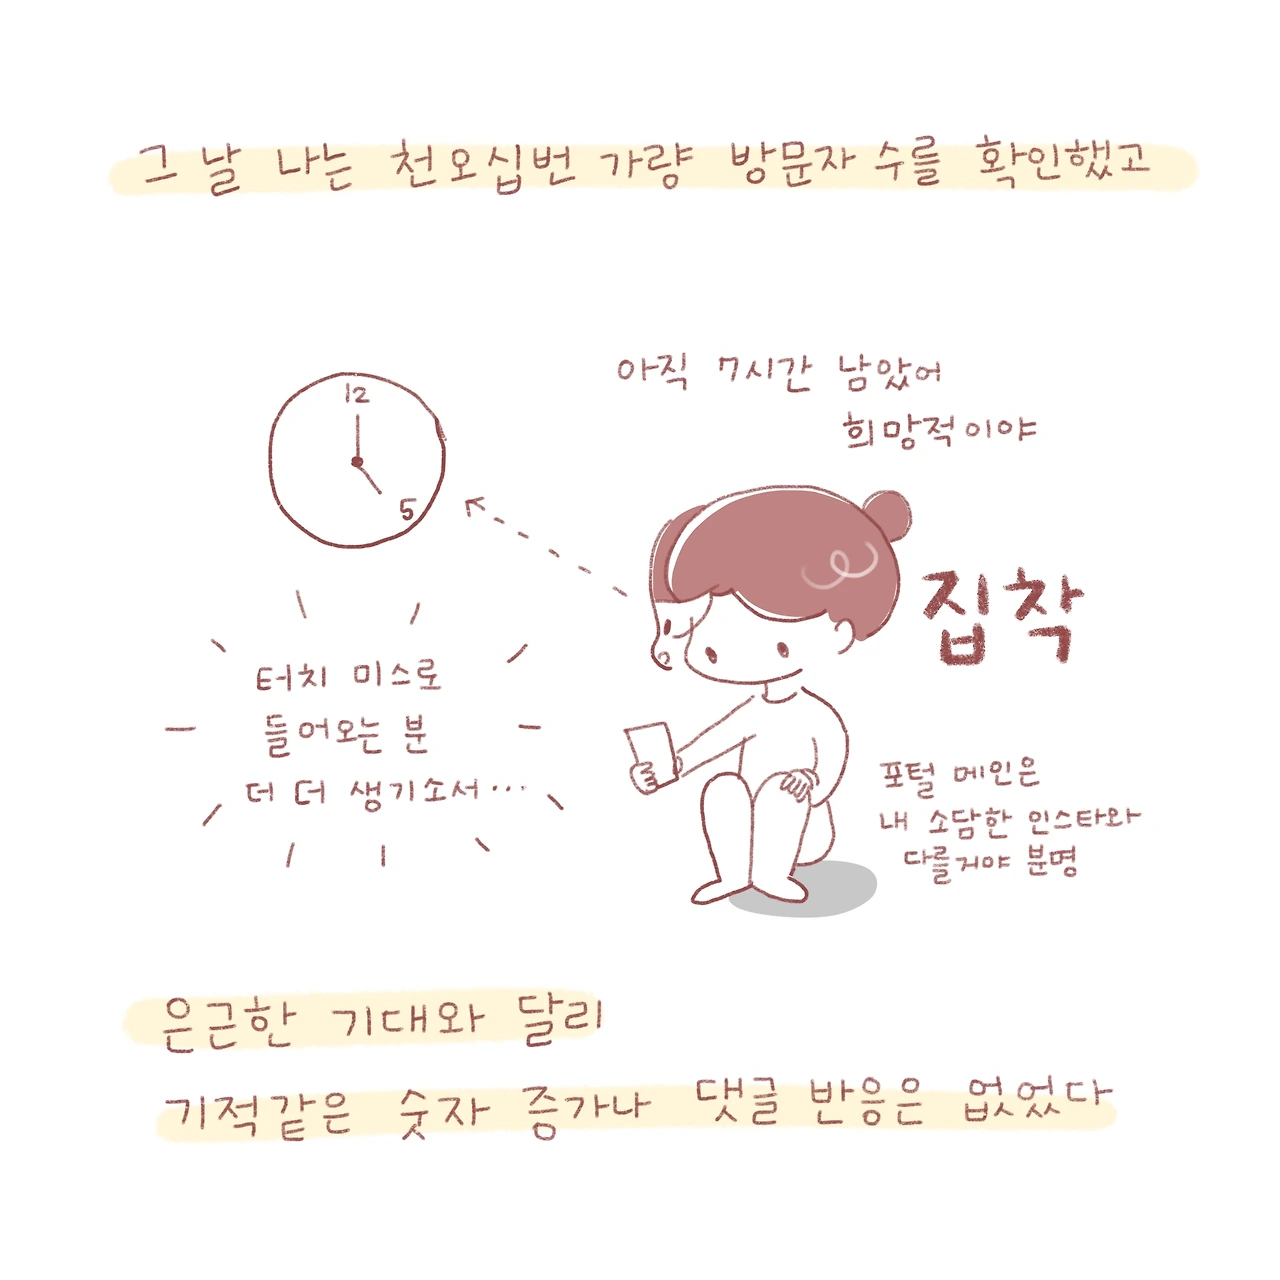 그 날 나는 천오십번 가량 방문자 수를 확인했고
아직 7시간 남았어
희망적이야
12
5
집착
터치 미스로
들어오는 분
더 더 생기소서...
포털 메인은
내 소담한 인스타와
다를거야 분명
은근한 기대와 달리
기적같은 숫자 증가나 댓글 반응은 없었다